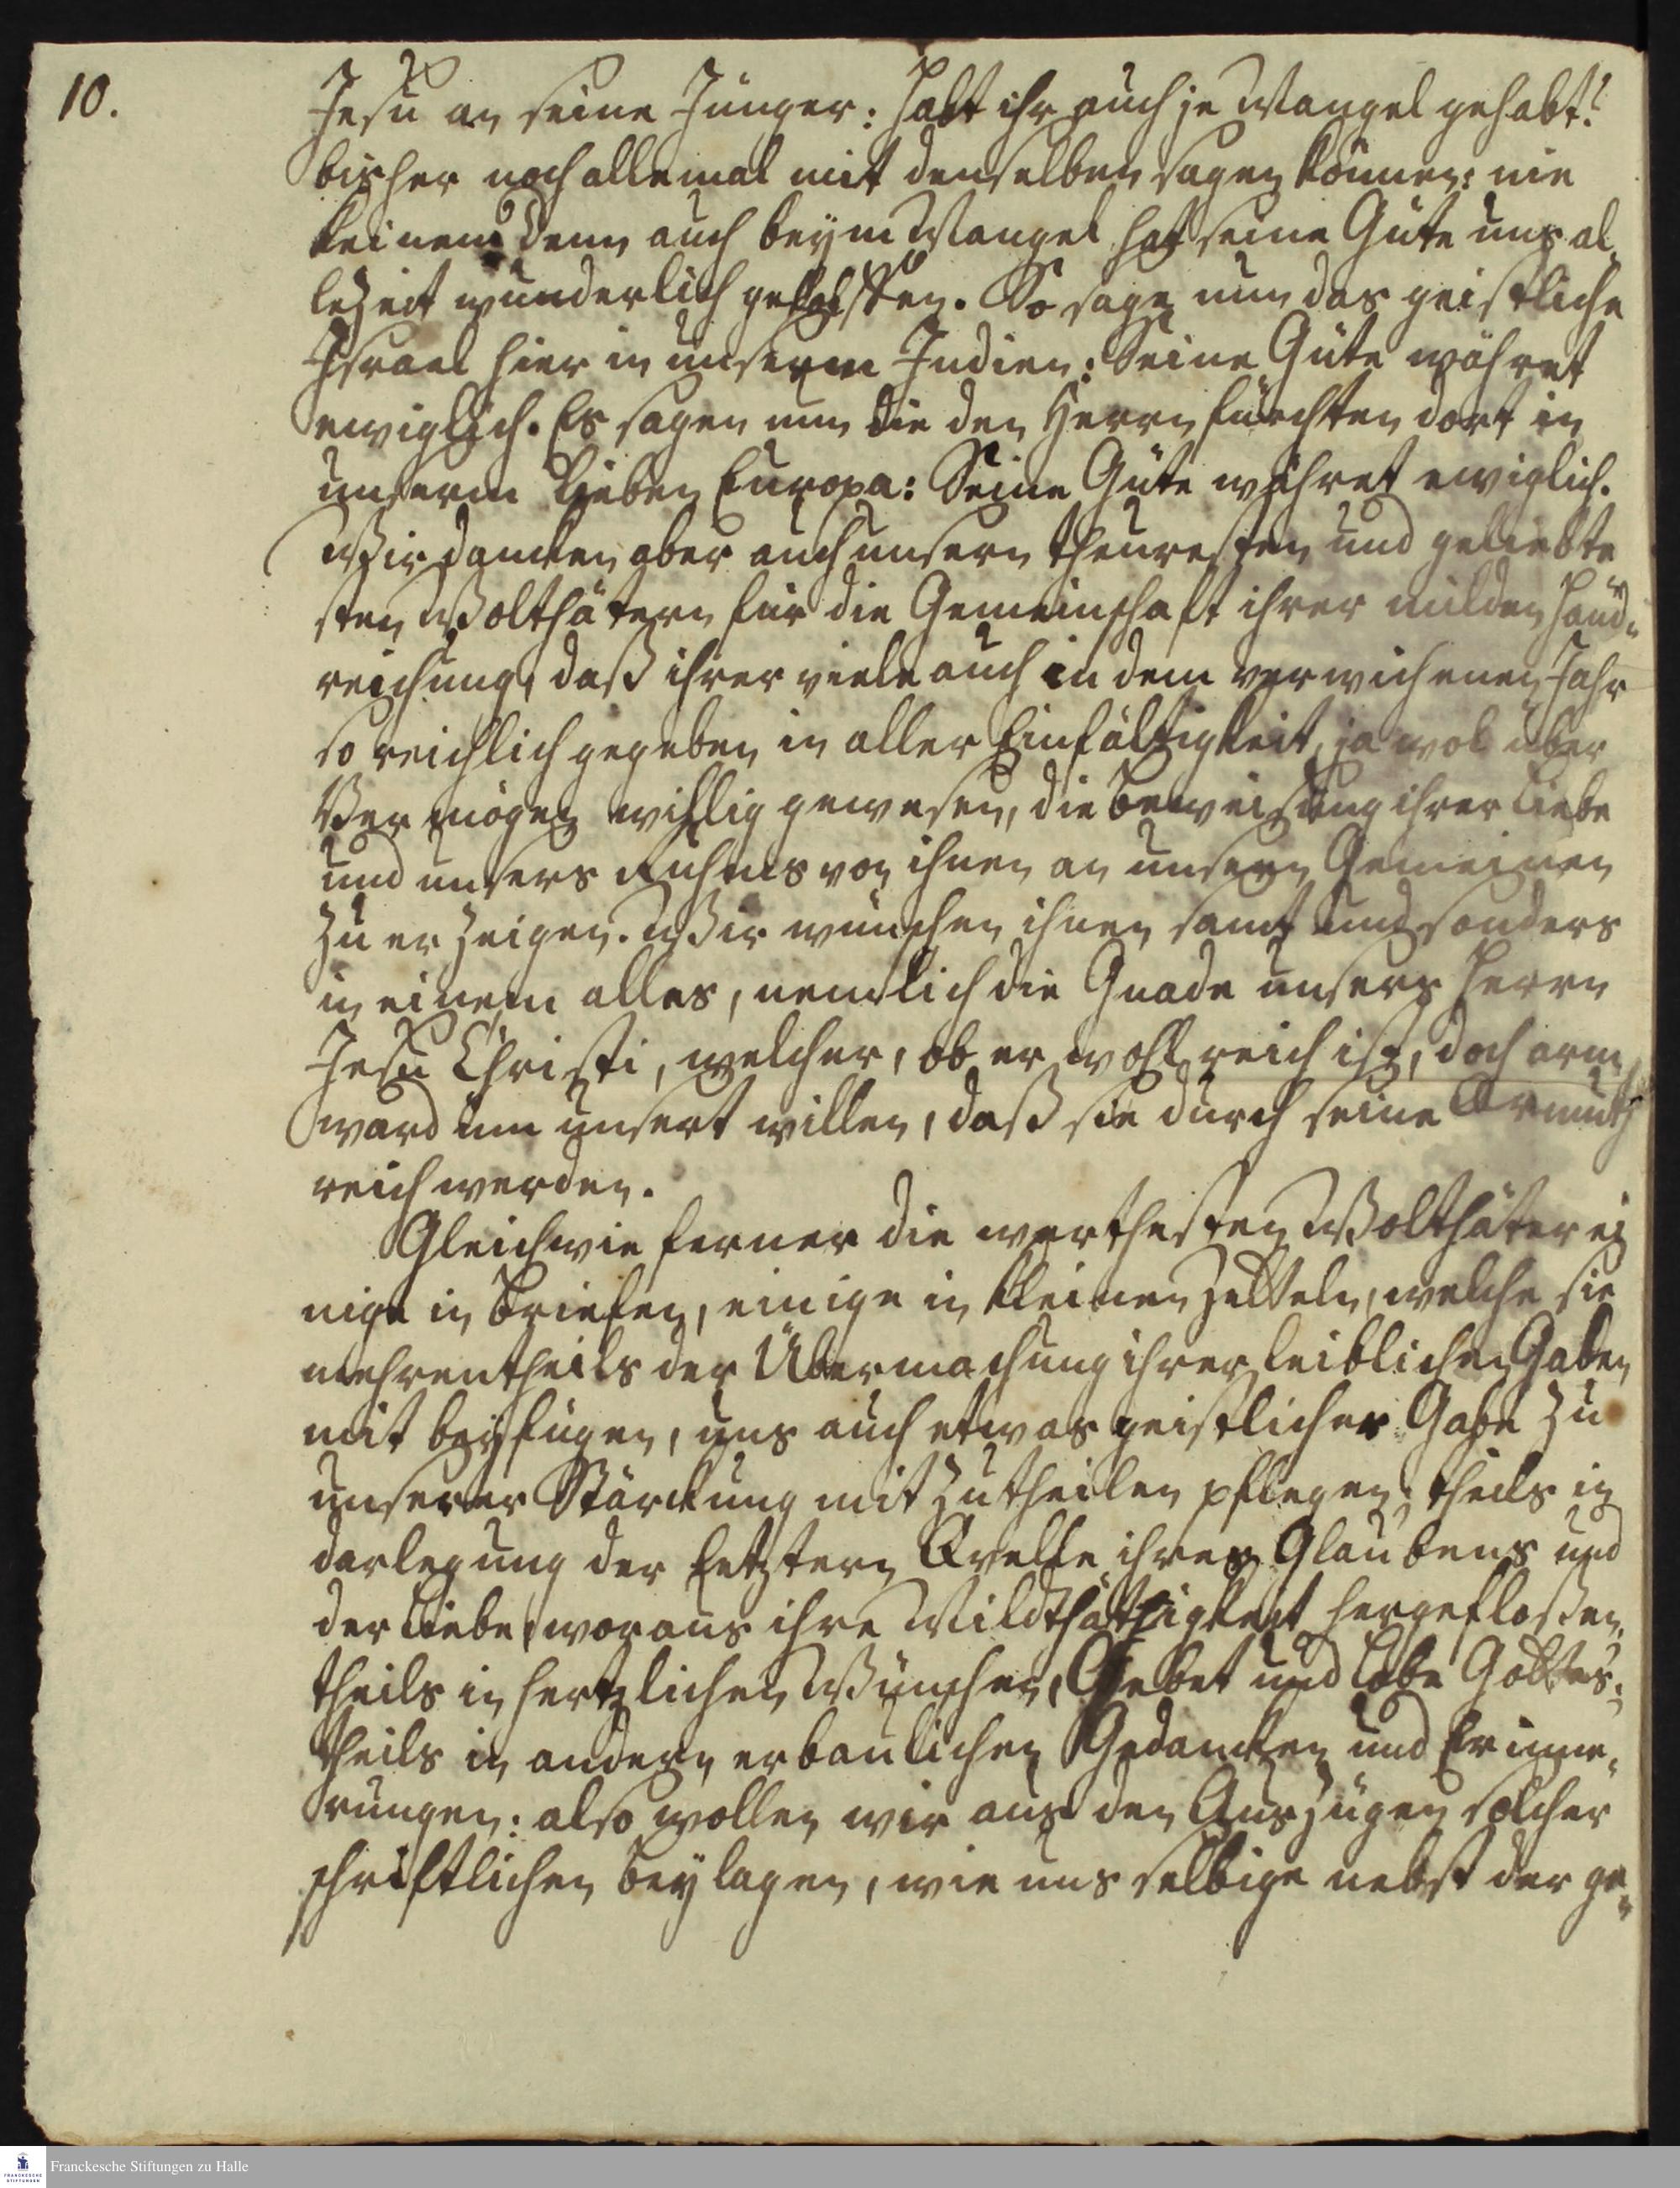 10.
Jesu an seine Jünger: habt ihr auch je Mangel gehabt?
bisher noch allemal mit denselben sagen können: nie
keinen; denn auch beym Mangel hat seine Güte uns al-
lezeit wunderlich geholffen. So sage nun das geistliche
Israel hier in unserm Indien: Seine Güte währet
ewiglich. Es sagen nun die den Herrn fürchten dort in
unserm lieben Europa: Seine Güte währet ewiglich.
Wir dancken aber auch unsern theuresten und geliebte
sten Wolthätern für die Gemeinschaft ihrer milden Hand-
reichung, daß ihrer viele auch in dem verwichenen Jahr
so reichlich gegeben in aller Einfältigkeit, ja wol über
Vermögen willig gewesen, die Beweisung ihrer Liebe
und unsers Ruhms von ihnen an unsern Gemeinen
zu erzeigen. Wir wünschen ihnen samt und sonders
in einem alles, nemlich die Gnade unsers Herrn
Jesu Christi, welcher, ob er wohl reich ist, doch arm
ward um unsert willen, daß sie durch seine Armuth
reich werden.
Gleichwie ferner die werthesten Wolthäter ei
nige in Briefen, einige in kleinen Zetteln, welche sie
mehrentheils der Übermachung ihrer leiblichen Gaben
mit beyfügen, uns auch etwas geistlicher Gabe zu
unserer Stärckung mitzutheilen pflegen; theils in
darlegung der letztern Qvelle ihres Glaubens und
der Liebe, woraus ihre Mildthätigkeit hergefloßen,
theils in hertzlichen Wünschen, Gebet und Lobe Gottes;
theils in andern erbaulichen Gedancken und Erinne-
rungen: also wollen wir aus den Auszügen solcher
schriftlichen Beylagen, wie uns selbige nebst der ge-
Franckesche Stiftungen zu Halle